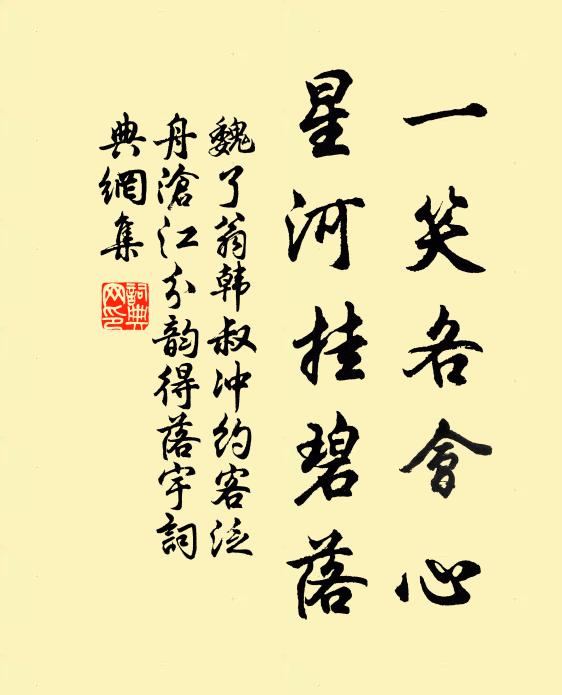 一笑各會心
星河挂碧落
魏了翁韩叔冲约客泛
舟滄江分韵得落字詞
典網集
詞典
网印